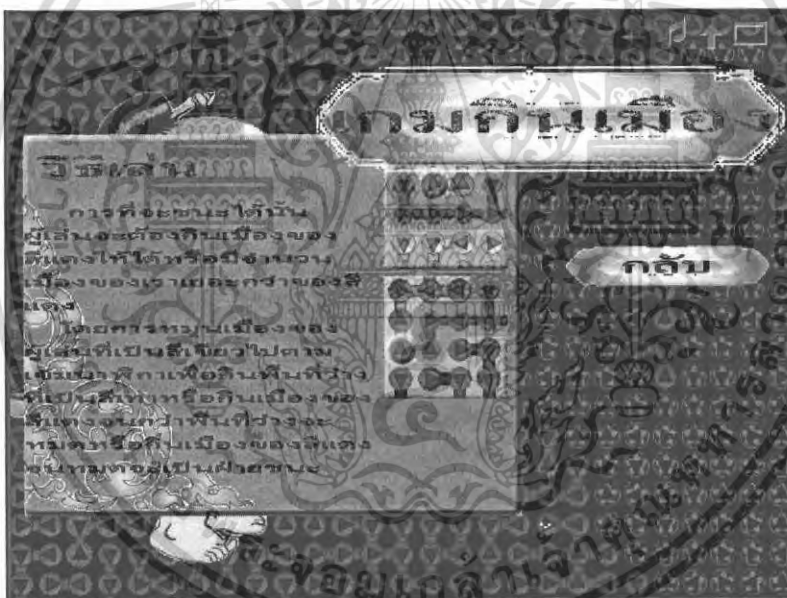 เกมกินเมือง
วิธีเล่น
การที่จะชนะได้นั้น
ผู้เล่นจะต้องกินเมืองของ
สีแดงให้ได้หรือมีจำนวน
เมืองของเราเยอะกว่าของสี
แดง
โดยการหมุนเมืองของ
ผู้เล่นที่เป็นสีเขียวไปตาม
เข็มนาฬิกาเพื่อกินพื้นที่ว่าง
ที่เป็นสีเทาหรือกินเมืองของ
สีแดงจนกว่าพื้นที่ว่างจะ
หมดหรือกินเมืองของสีแดง
จนหมดจะเป็นฝ่ายชนะ
กลับ